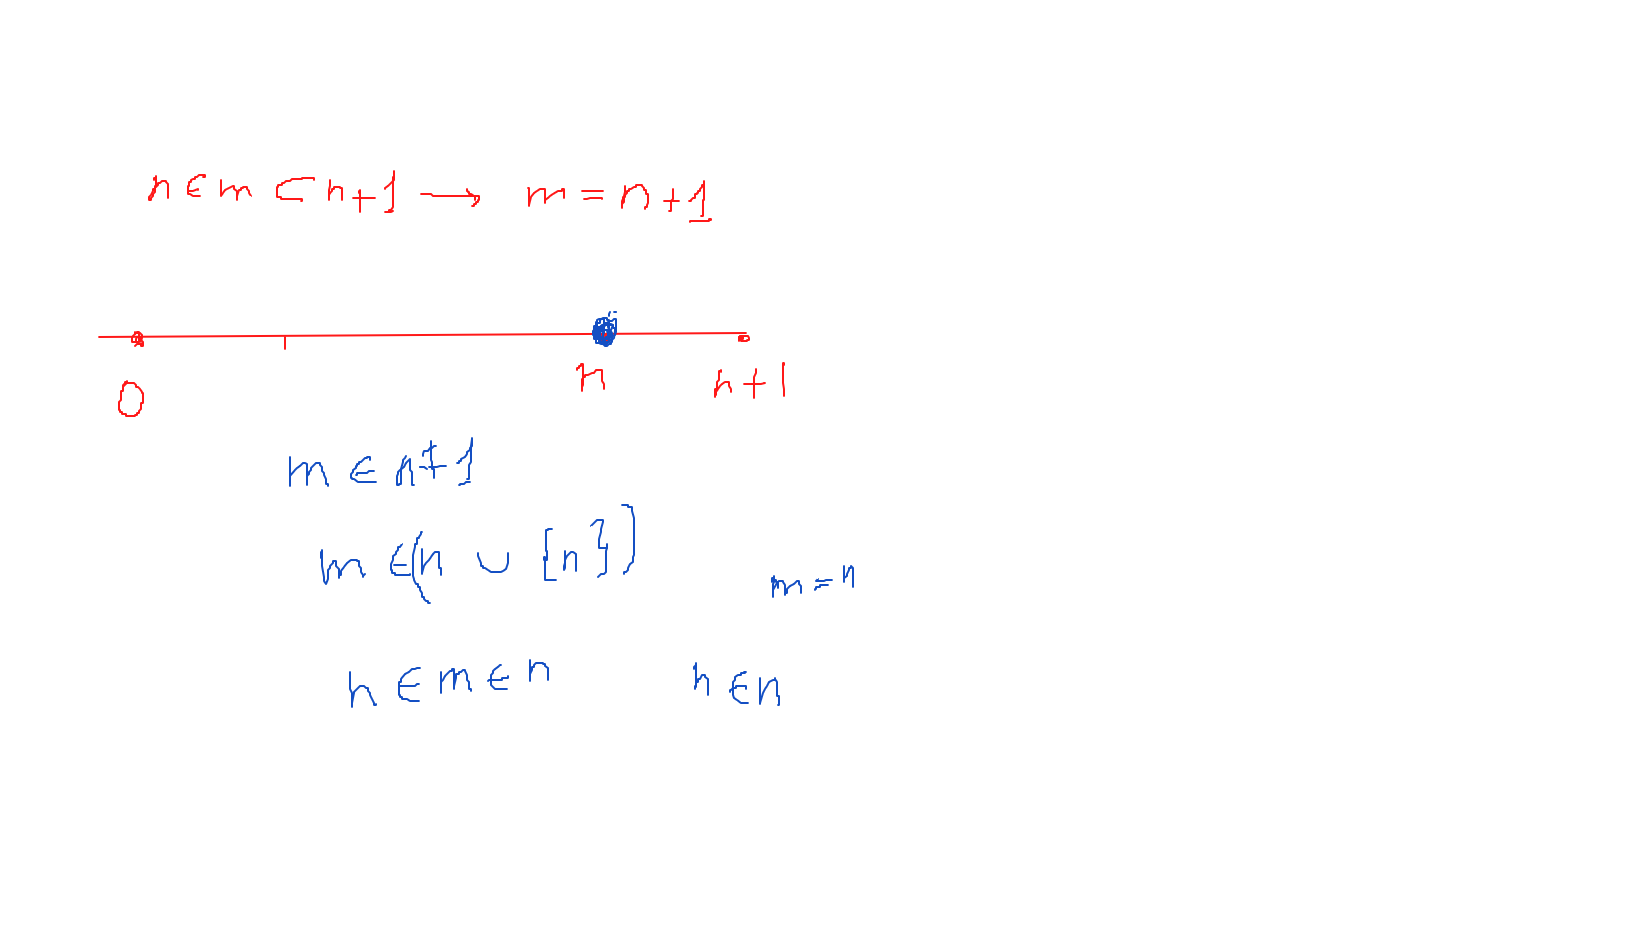 n ∈ m ⊂ n+1 → m = n+1
0 n n+1
m ∈ n+1
m ∈ (n ∪ {n})
m = n
n ∈ m ∈ n n ∈ n